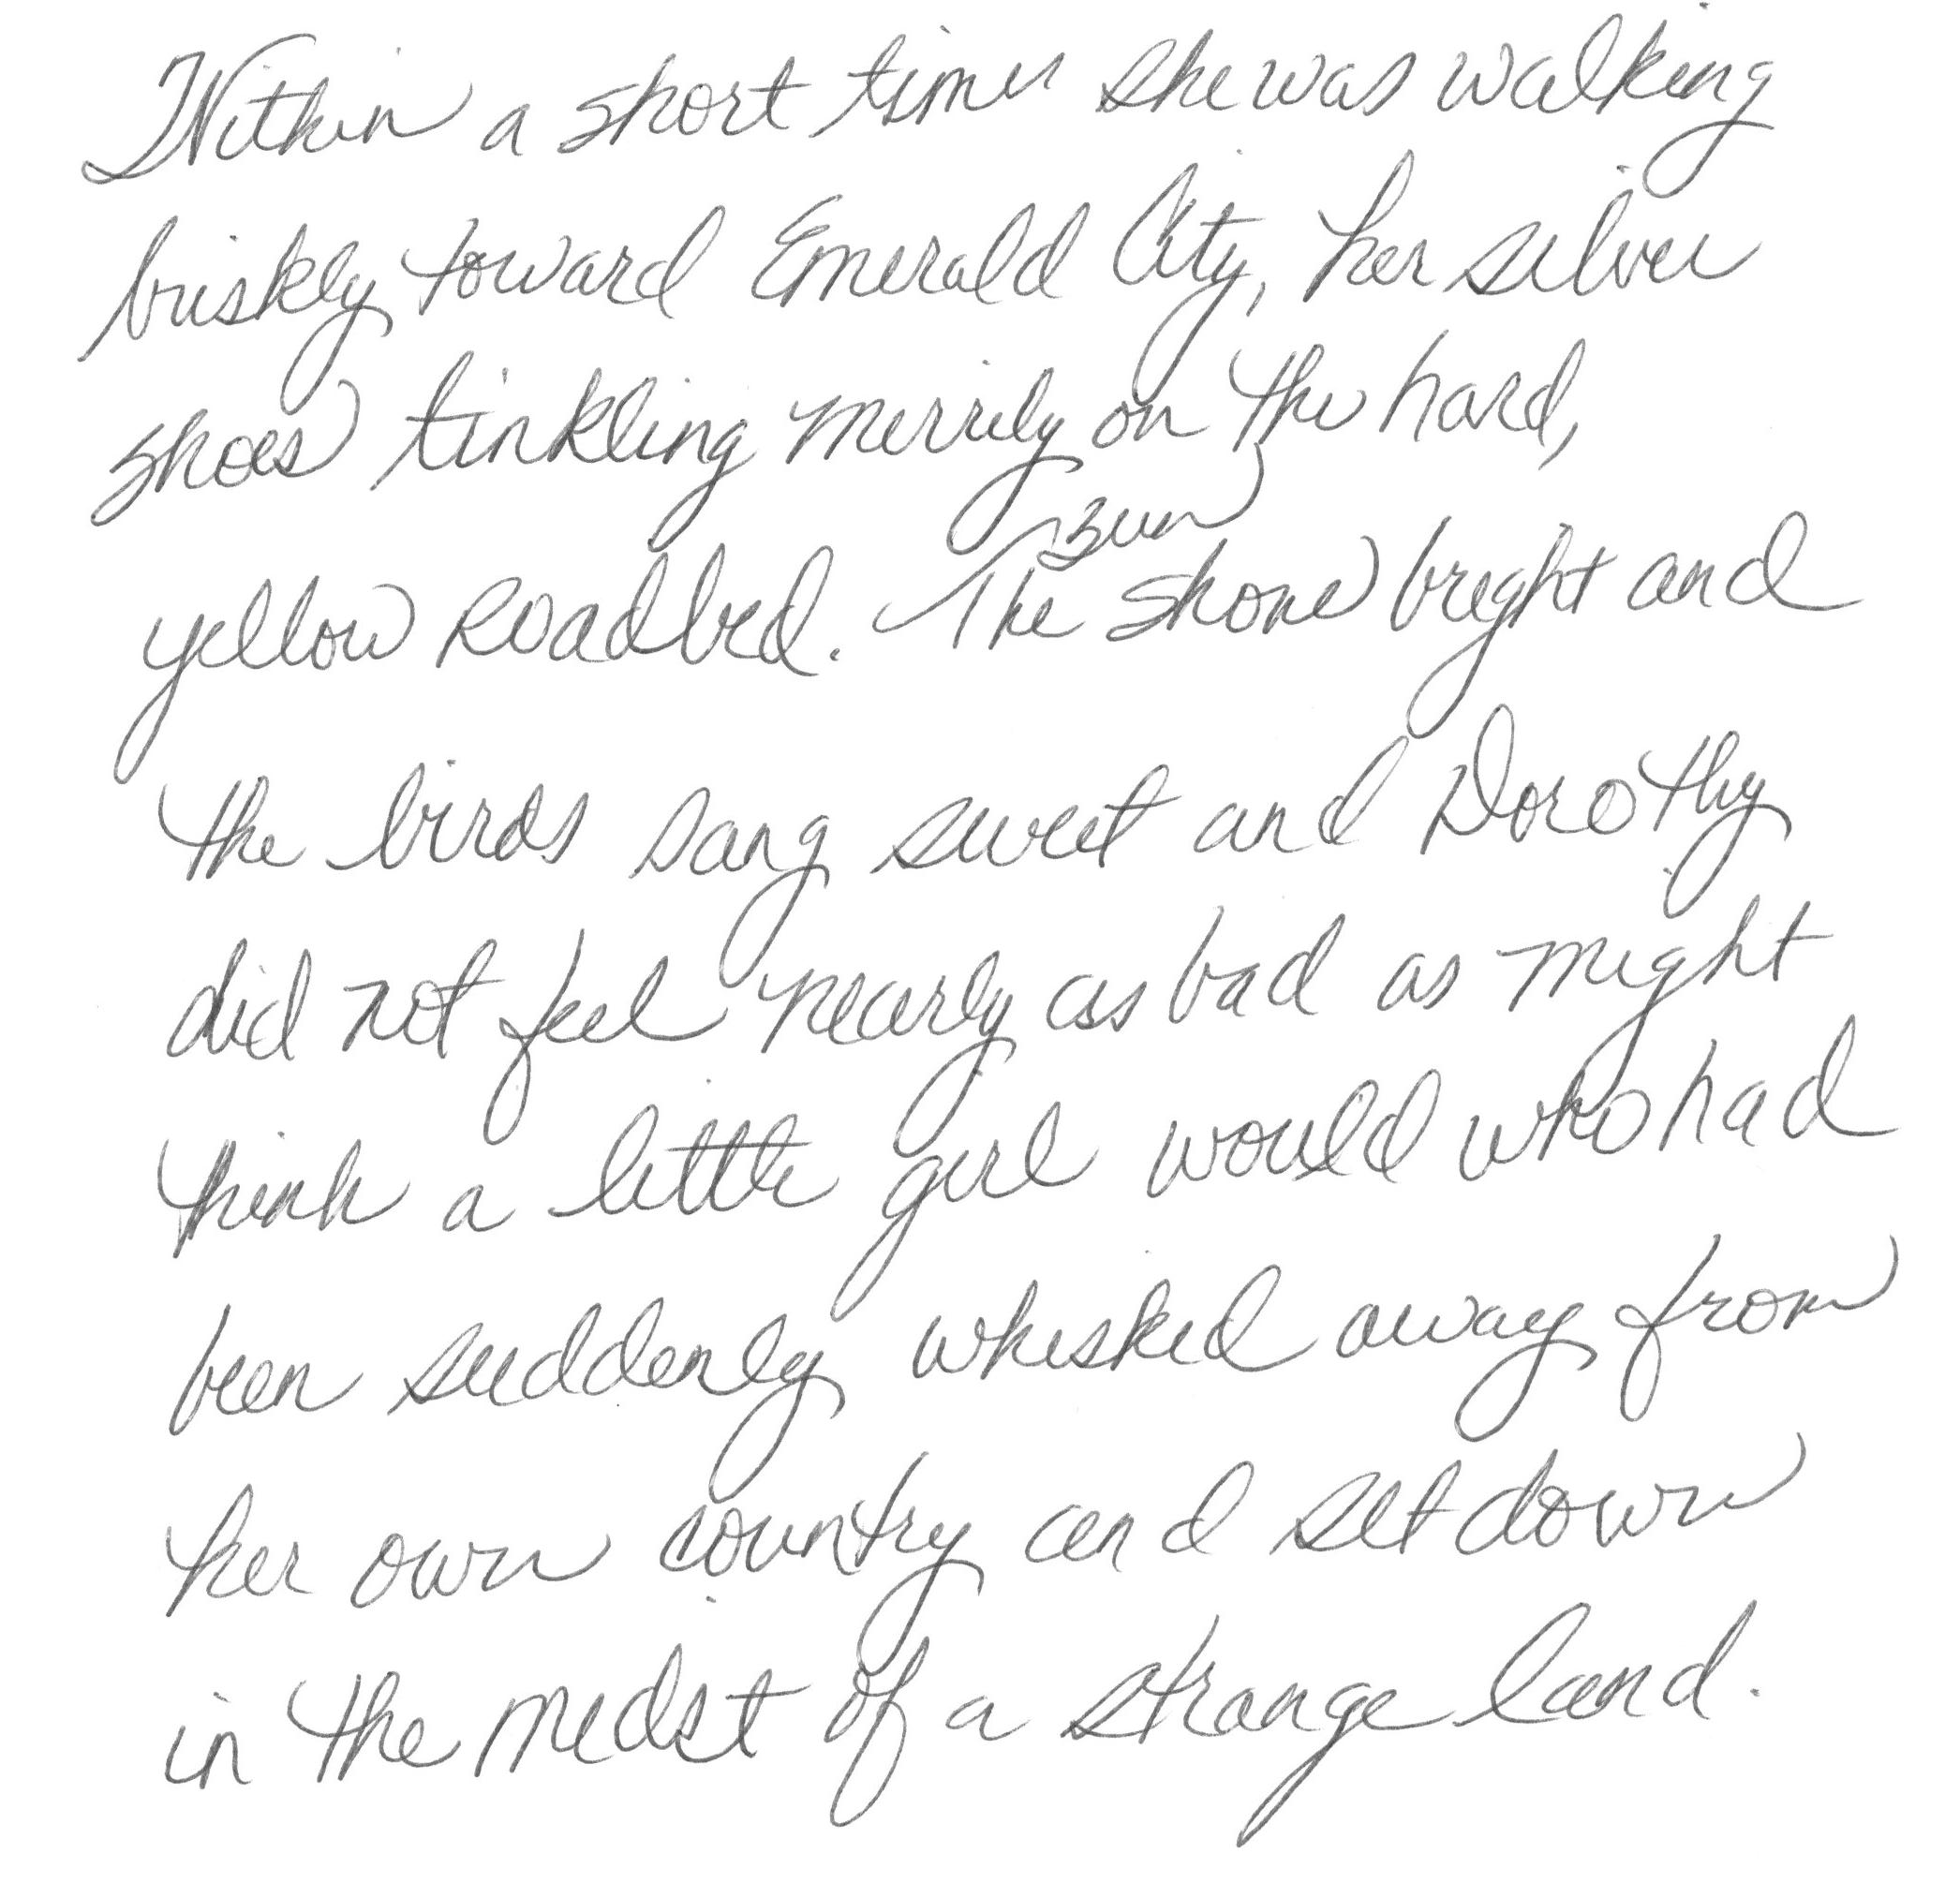 Within a short time she was walking
briskly toward Emerald City, her silver
shoes tinkling merrily on the hard,
yellow Roadbed. The sun shone bright and
the birds sang sweet and Dorothy
did not feel nearly as bad as might
think a little girl would who had
been suddenly whisked away from
her own country and set down
in the midst of a strange land.